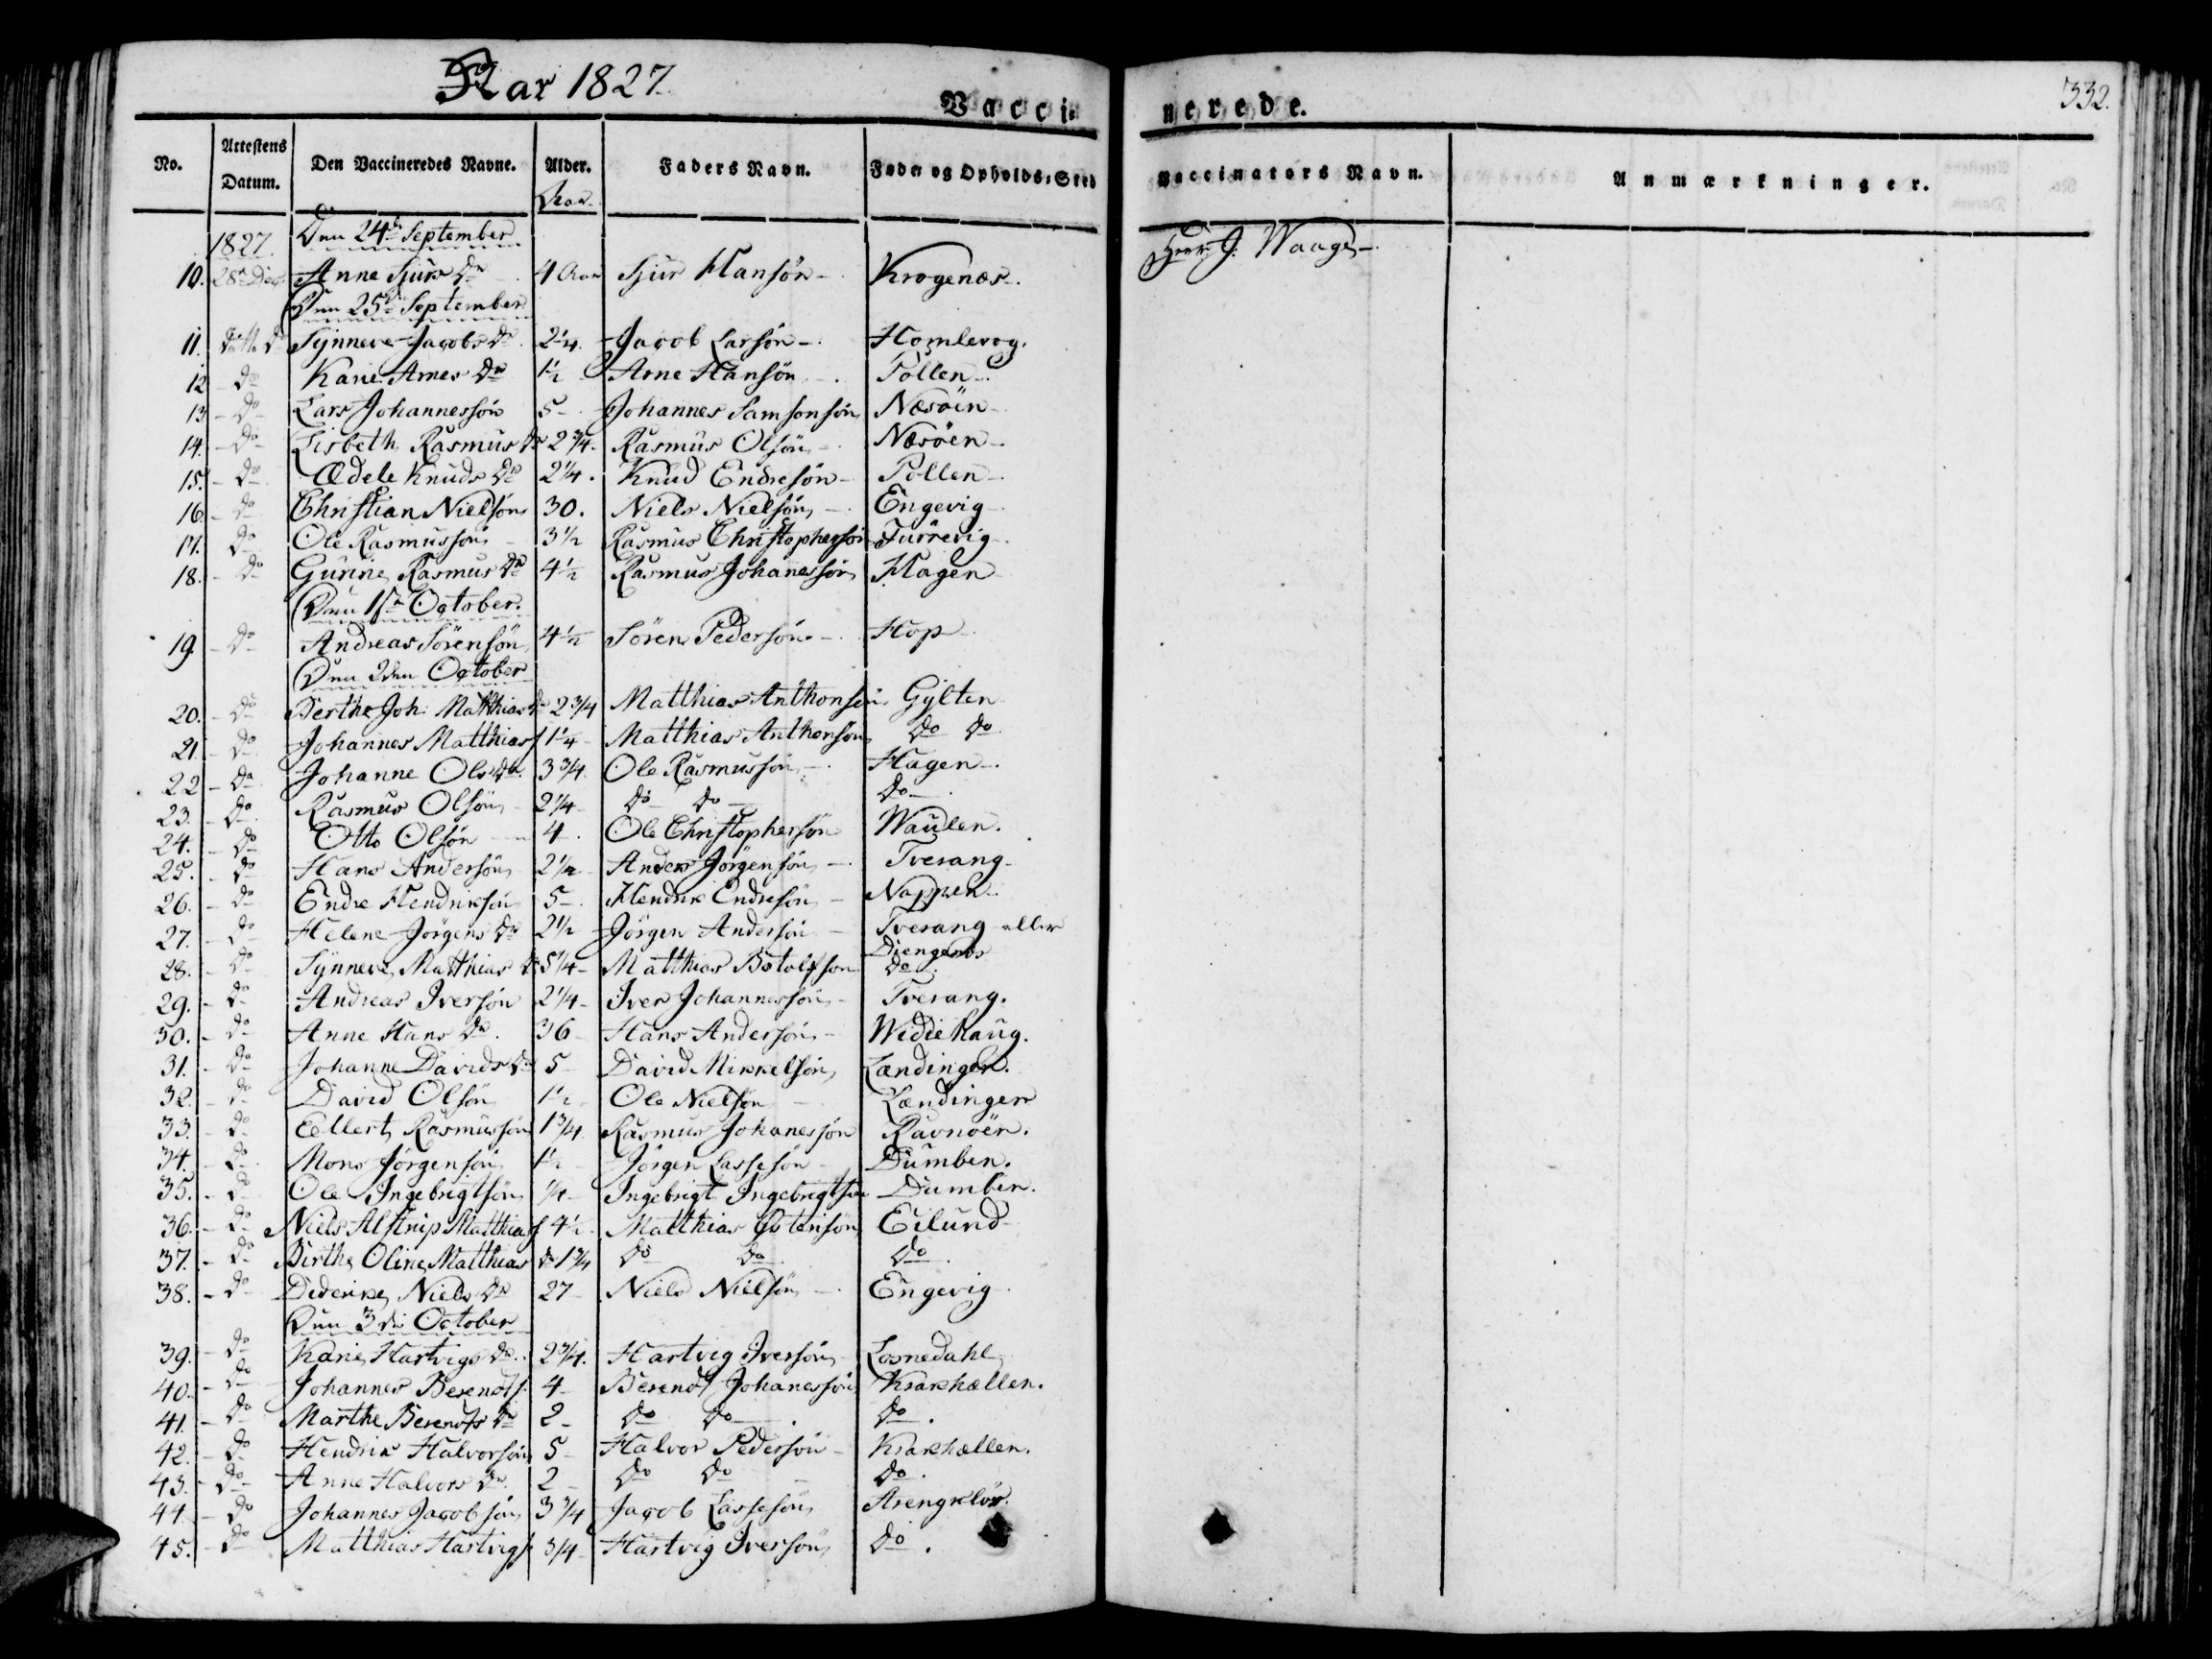 Aar 1827.
Vaccinerede.
332.
No. Attestens Datum. Den Vaccineredes Navne. Alder. Faders Navn. Føde- og Opholds-Sted Vaccinators Navn. Anmærkninger.
Aar
1827. Den 24de September
10. 28de Dec. Anne Sjurs Dr 4 Aar Sjur Hansøn Krogenæs. Herr J. Waage
Den 25de September
11. Ditto Do Synneve Jacobs Dr 2 1/4. Jacob Larsøn Homlevog.
12 Do Karie Arnes Dr 1 1/2 Arne Hansøn Pollen.
13 Do Lars Johannessøn 5 Johannes Samsonsøn Næsøen
14. Do Lisbeth Rasmus Dr 2 3/4. Rasmus Olsøn Næsøen
15. Do Ædele Knuds Dr 2 1/4. Knud Endresøn Pollen
16. Do Christian Nielsøn 30. Niels Nielsøn Engevig
17. Do Ole Rasmussøn 3 1/2 Rasmus Christophersøn Furrevig
18. Do Gurine Rasmus Dr 4 1/2 Rasmus Johanessøn Hagen
Den 1ste October.
19. Do Andreas Sørensøn 4 1/2 Søren Pedersøn Hop
Den 2den October
20. Do Berthe Joh. Matthias Dr 2 3/4 Matthias Anthonsøn Gylten
21. Do Johannes Matthias s 1 1/4 Matthias Anthonsøn Do Do
22 Do Johanne Ols Dr. 3 3/4. Ole Rasmussøn Hagen.
23. Do Rasmus Olsøn 2 1/4 Do Do Do
24. Do Otto Olsøn 4. Ole Christophersøn Waulen.
25. Do Hans Andersøn 2 1/2 Anders Jørgensøn Tverang
26. Do Endre Hendriksøn 5. Hendrik Endresøn Nappen
27. Do Helene Jørgens Dr 2 1/2 Jørgen Andersøn Tverang eller Diengenes
28. Do Synneve Matthias Dr 5 1/4 Matthias Botolfsøn Do
29. Do Andreas Iversøn 2 1/4 Iver Johannessøn Tverang.
30. Do Anne Hans Dr. 36 Hans Andersøn Wediehaug.
31. Do Johanne Davids Dr 5 David Mikkelsøn Lændingen.
32. Do David Olsøn 1 1/2 Ole Nielsøn Lændingen
33. Do Ellert Rasmussøn 1 3/4 Rasmus Johanessøn Ravnøen.
34. Do Mons Jørgensøn 1 1/2 Jørgen Lassesøn Dumben.
35. Do Ole Ingebrigtsøn 1/4 Ingebrigt Ingebrigtsøn Dumben.
36. Do Niels Alstrup Matthias s 4 1/2 Matthias Ostensøn Eilund
37. Do Birthe Oline Matthias Dr 1 3/4 Do Do Do
38. Do Diderike Niels Dr 27 Niels Nielsøn Engevig
Den 3die October
39. Do Karie Hartvigs Dr. 2 3/4. Hartvig Iversøn Losnedahl
40. Do Johannes Berendts. 4 Berendt Johanessøn Krakhællen.
41. Do Marthe Berendts Dr 2 Do Do Do.
42. Do Hendrik Halvorsøn 5 Halvor Pedersøn Krakhællen.
43. Do Anne Halvors Dr. 2 Do Do Do.
44 Do Johannes Jacobsøn 3 3/4 Jacob Lassesøn
45. Do Matthias Hartvigs 3/4 Hartvig Iversøn Do.